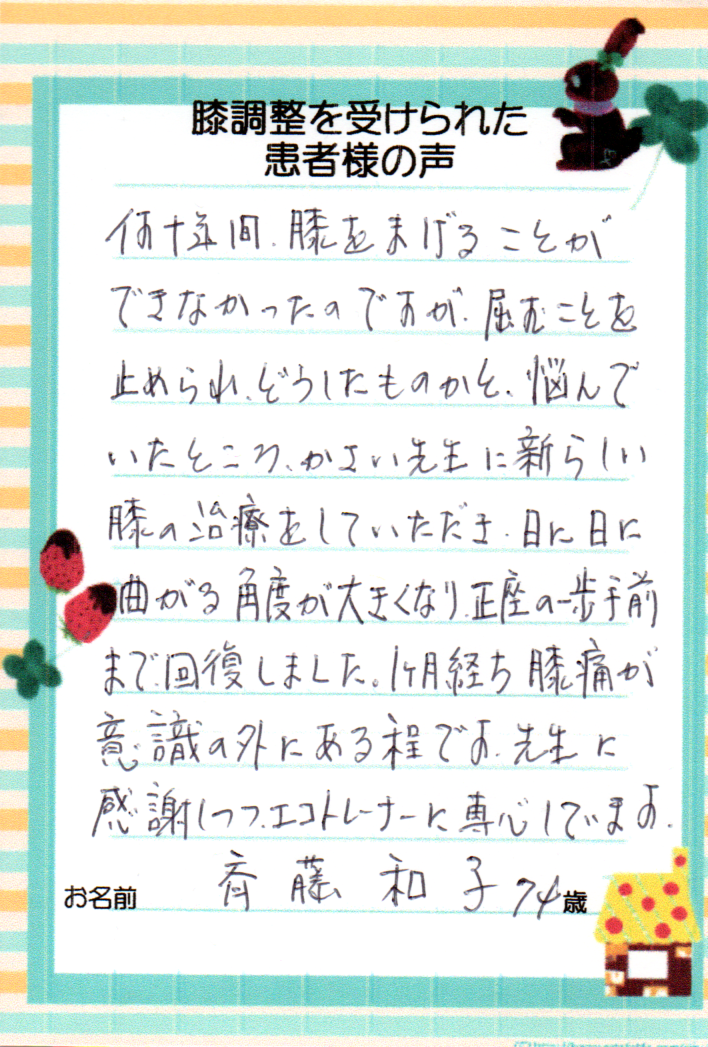 膝調整を受けられた
患者様の声
何十年間、膝をまげることが
できなかったのですが、屈むことを
止められ、どうしたものかと、悩んで
いたところ、かさい先生に新らしい
膝の治療をしていただき、日に日に
曲がる角度が大きくなり、正座の一歩手前
まで回復しました。1ヶ月経ち膝痛が
意識の外にある程です。先生に
感謝しつつ、エコトレーナーに専心しています。
お名前 斉藤和子 74歳